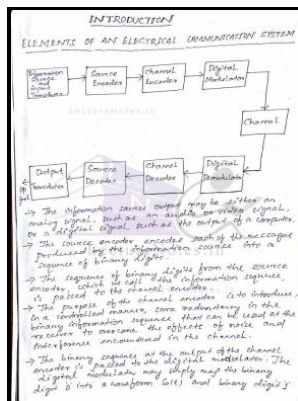 INTRODUCTION
ELEMENTS OF AN ELECTRICAL COMMUNICATION SYSTEM
Information
Source
Input
Transducer
Source
Encoder
Channel
Encoder
Digital
Modulator
LectureNotes.in
Channel
Output
Transducer
Source
Decoder
Channel
Decoder
Digital
Demodulator
→ The information source output may be either an
analog signal, such as an audio or video signal,
or a digital signal, such as the output of a computer.
→ The source encoder encodes each of the messages
produced by the information source into a
sequence of binary digits.
→ The sequence of binary digits from the source
encoder, which we call the information sequence,
is passed to the channel encoder.
→ The purpose of the channel encoder is to introduce,
in a controlled manner, some redundancy in the
binary information sequence that can be used at the
receiver to overcome the effects of noise and
interference encountered in the channel.
→ The binary sequence at the output of the channel
encoder is passed to the digital modulator. The
digital modulator may simply map the binary
digit '0' into a waveform and binary digit '1'